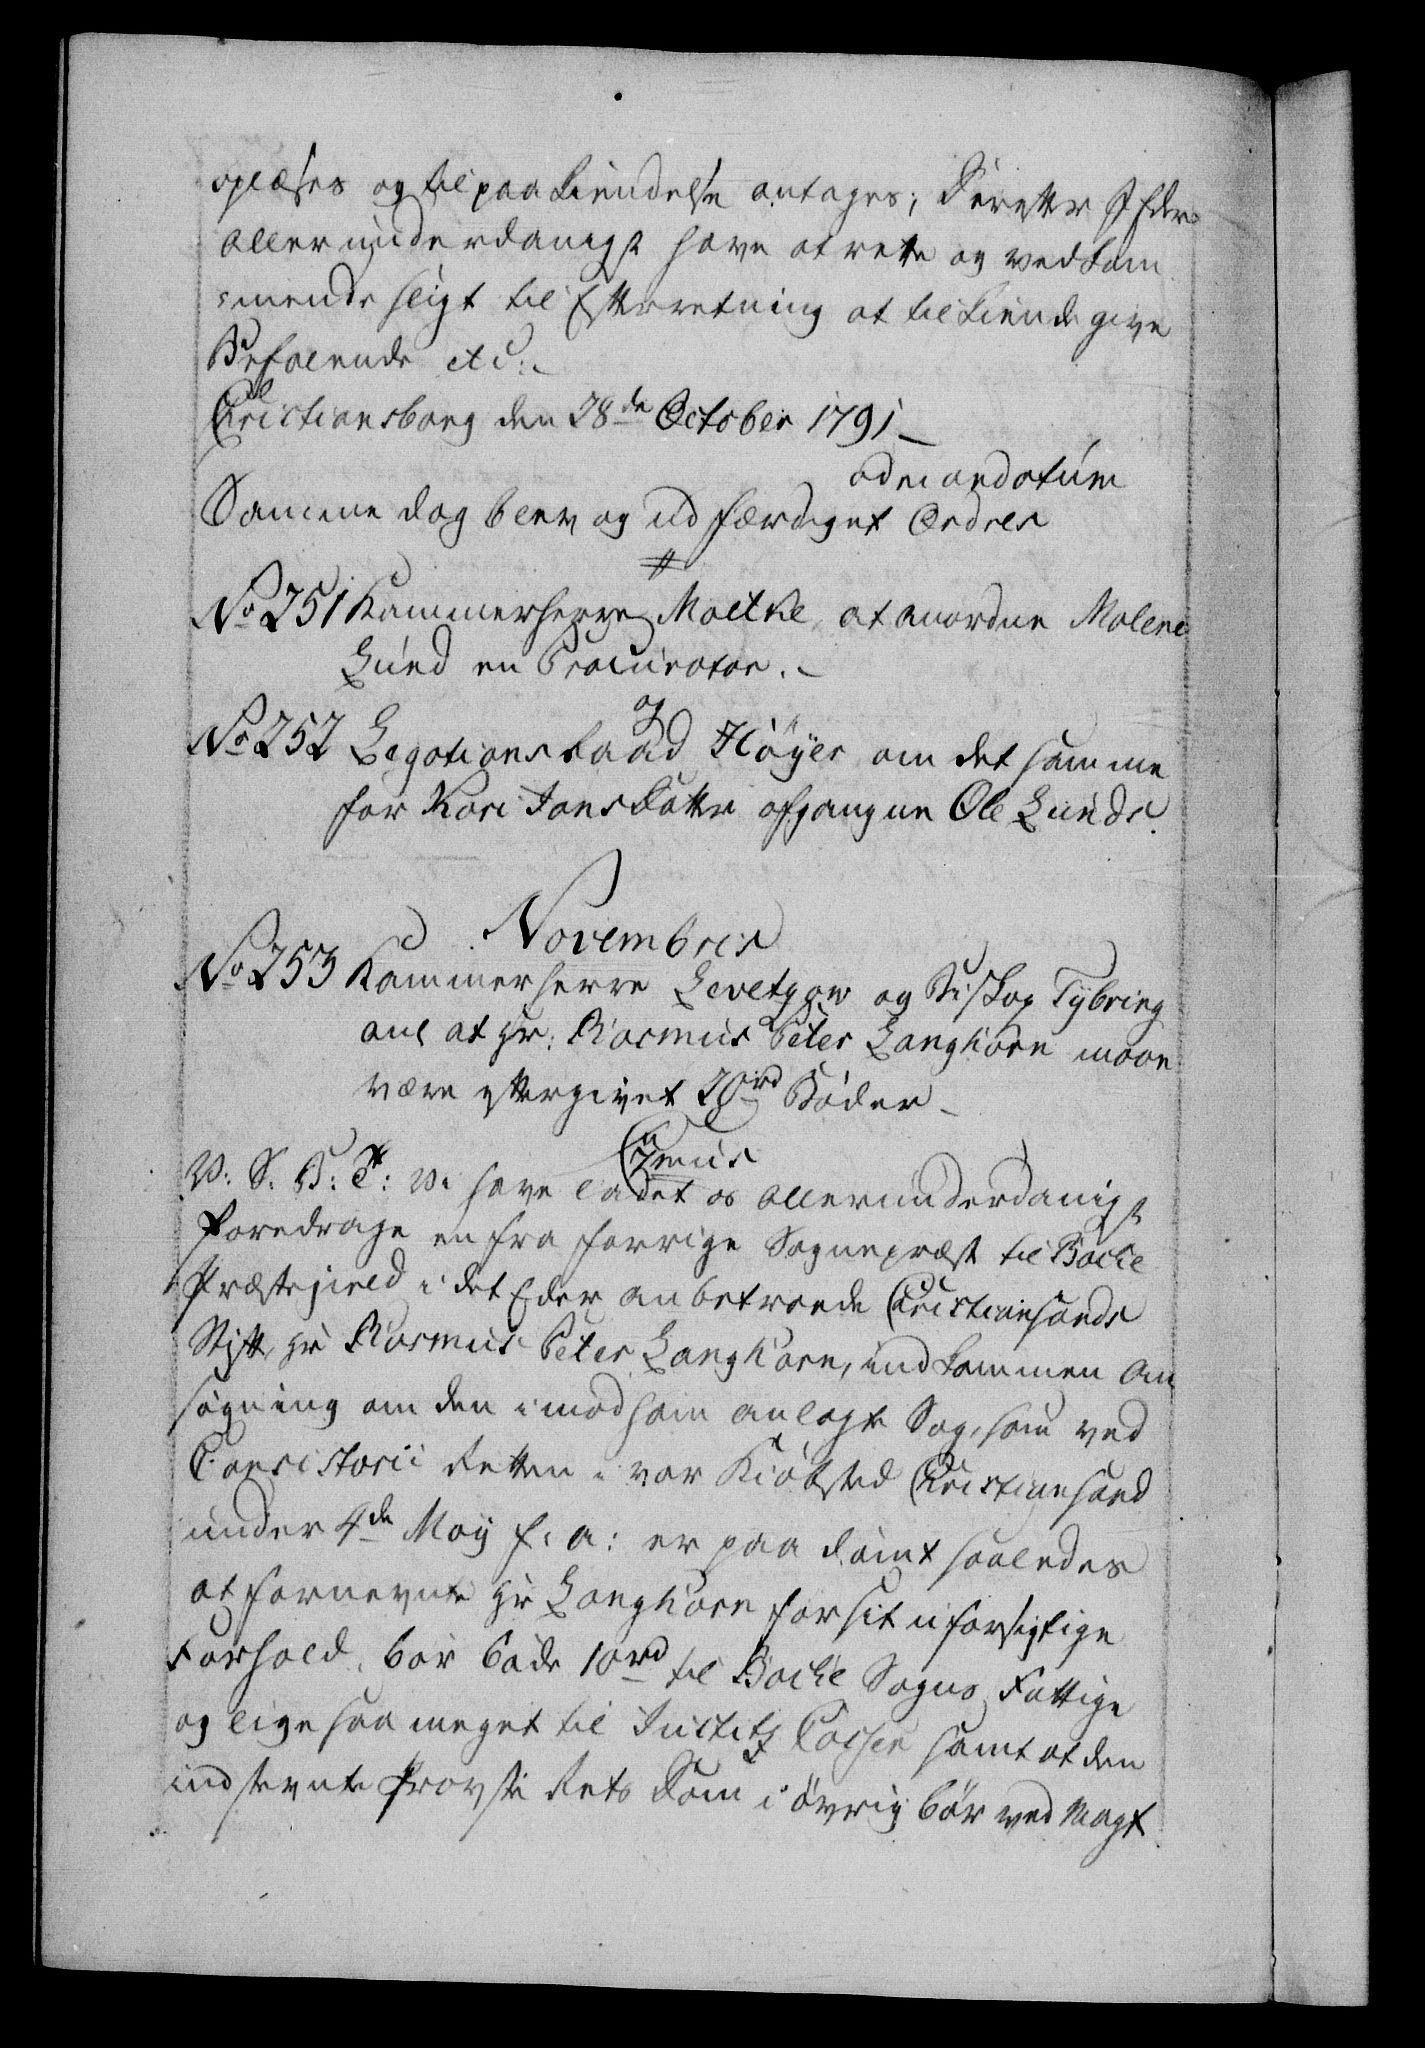 oplæses og til paakiendelse antages; Derefter I Eder
allerunderdanigst have at rette og vedkom
mende sligt til Efterretning at tilkiendegive
Befalende etc:
Christiansborg den 28de October 1791
ad mandatum
Samme dag blev og udfærdiget Ordres
No 251 Kammerherre Moltke at anordne Malene
Lund en Procurator.
og
No 252 Legationsraad Höyer om det samme
for Kari Jansdatter afgangne Ole Lunds.
Novembris
No 253 Kammerherre Levetzow og Biskop Tybring
anl at Hr: Rasmus Peter Langhorn maae
være eftergivet 20rd Bøder
C 7mus
V: S: B: T: Vi have ladet os allerunderdanigst
foredrage en fra forrige Sognepræst til Backe
Præstegield i det Eder anbetroede Christiansands
Stift, Hr Rasmus Peter Langhorn, indkommen An
søgning om den imod ham anlagte Sag, som ved
Consistorii Retten i vor Kiöbsted Christiansand
under 4de May f: a: er paadömt saaledes
at fornevnte Hr Langhorn for sit uforsigtige
Forhold, bör böde 10rd til Backe Sogns Fattige
og ligesaa meget til Justitz Cassen samt at den
indstevnte Provste Rets Dom i övrig bör ved Magt